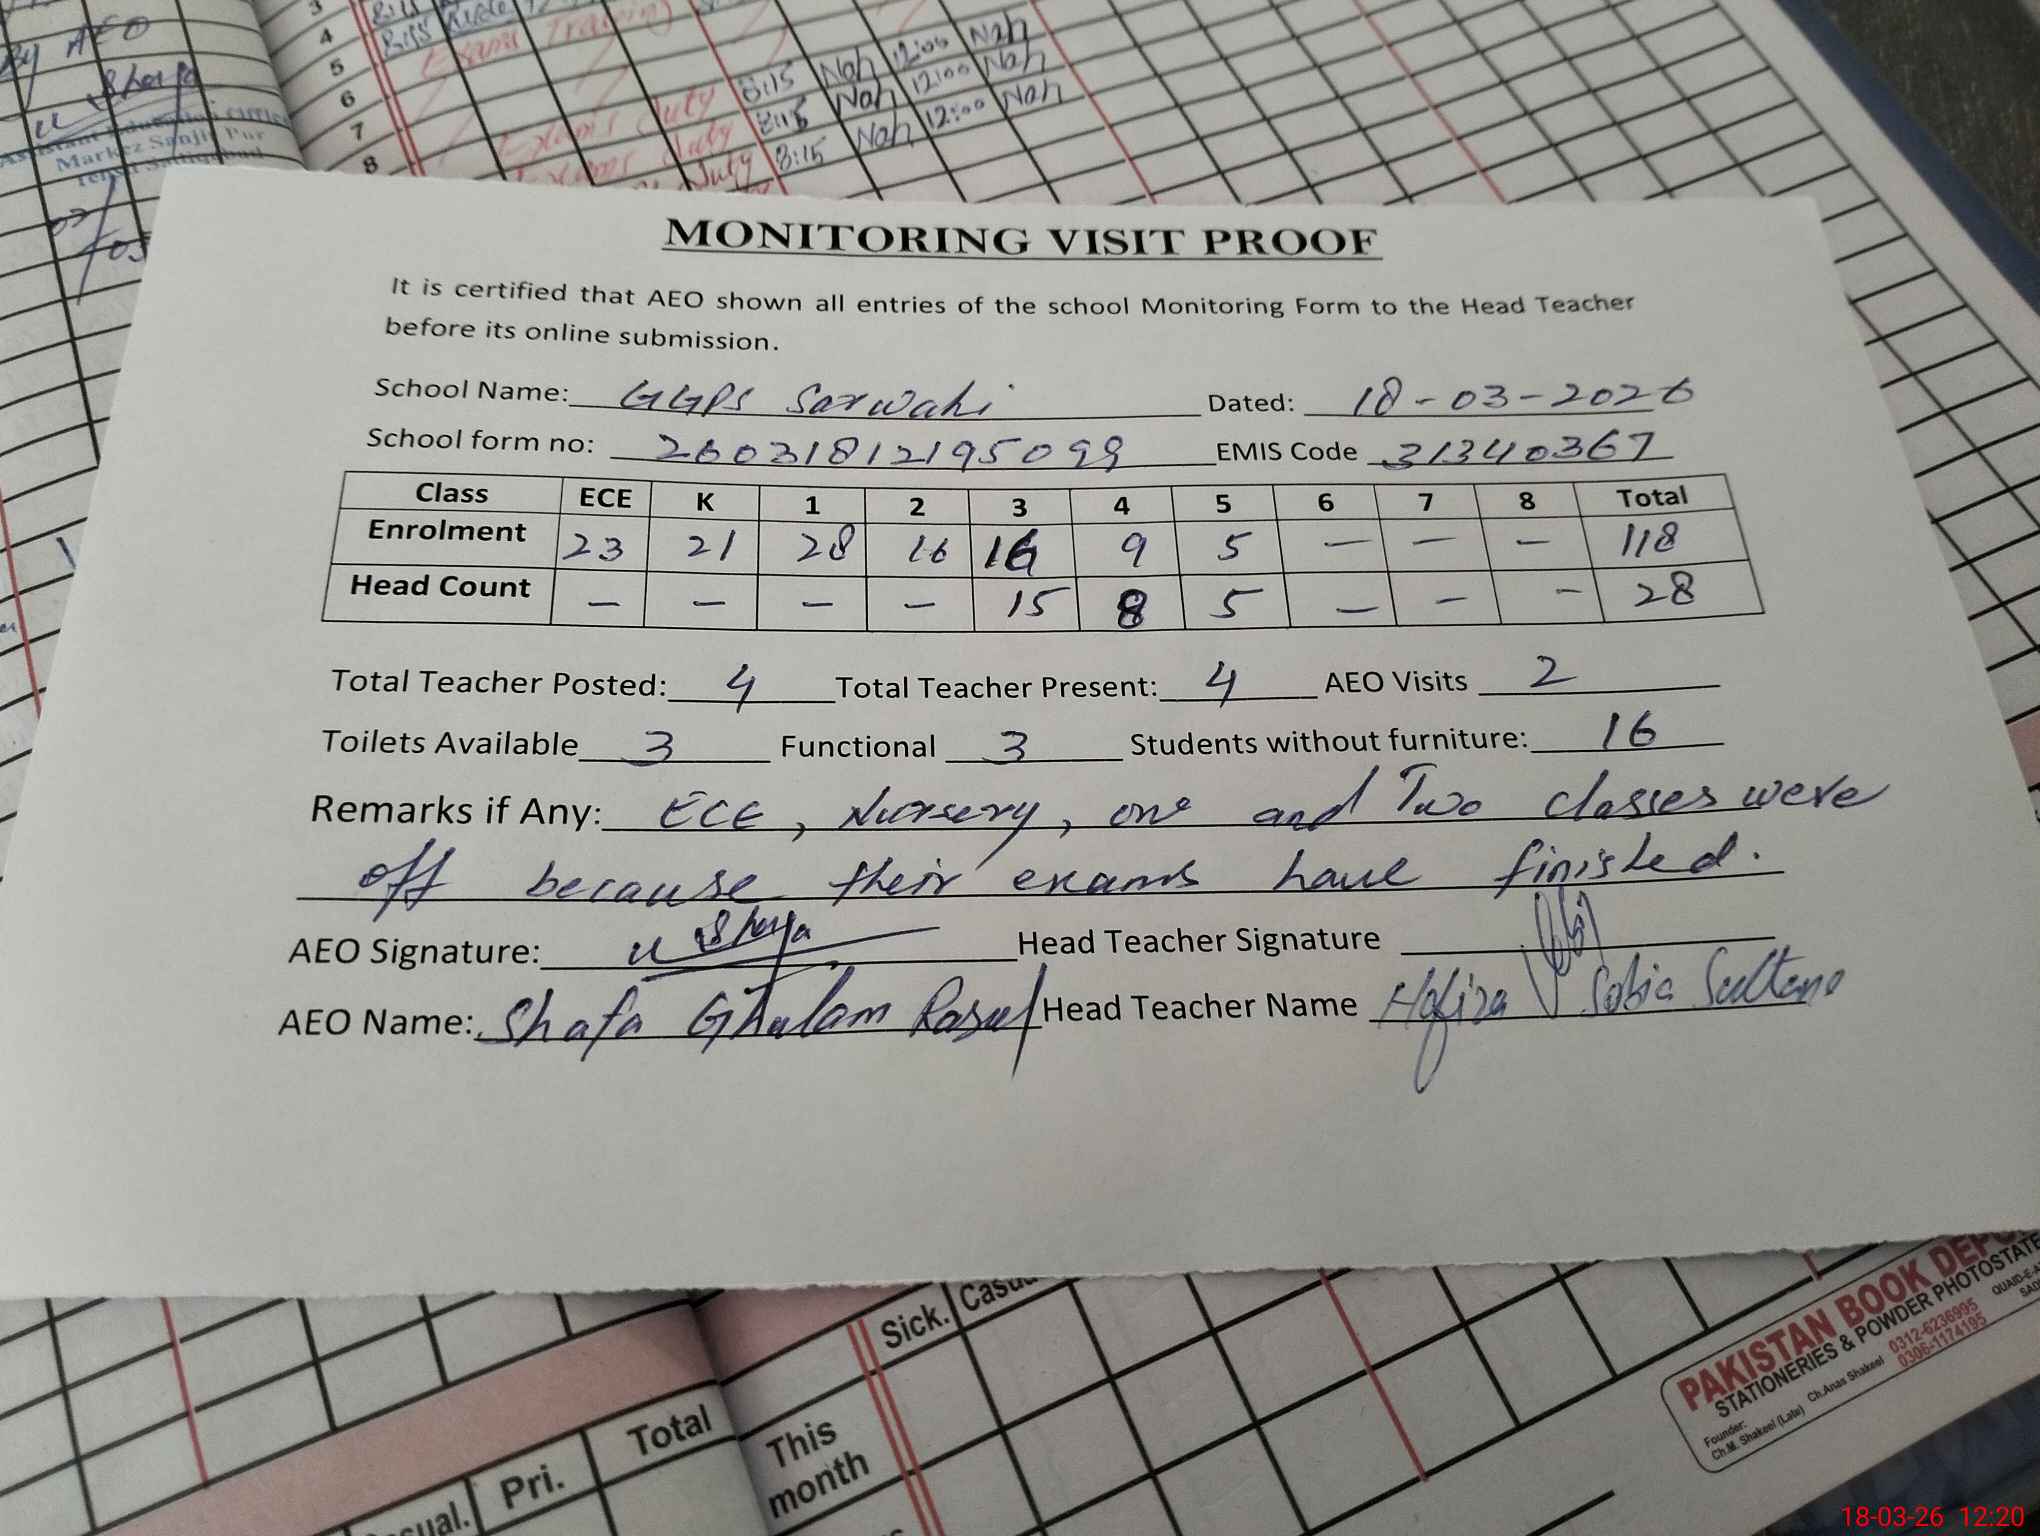 By AEO
Markez Sanjir Pur
3
4
5
6
7
8
8:15
Exams Training
Exams Duty 8:15 Nah 12:00 Nah
Exams Duty 8:15 Nah 12:00 Nah
Duty 8:15 Nah 12:00 Nah
MONITORING VISIT PROOF
It is certified that AEO shown all entries of the school Monitoring Form to the Head Teacher
before its online submission.
School Name: GGPS Sarwahi Dated: 18-03-2026
School form no: 26031812195099 EMIS Code 31340367
Class ECE K 1 2 3 4 5 6 7 8 Total
Enrolment 23 21 28 16 16 9 5 — — — 118
Head Count — — — — 15 8 5 — — — 28
Total Teacher Posted: 4 Total Teacher Present: 4 AEO Visits 2
Toilets Available 3 Functional 3 Students without furniture: 16
Remarks if Any: ECE, Nursery, one and Two classes were
off because their exams have finished.
AEO Signature: Head Teacher Signature
AEO Name: Shafa Ghulam Rasul Head Teacher Name Hafiza Sobia Sultana
Sick. Casu
This
month
Pri. Total
sual.
PAKISTAN BOOK DEPO
STATIONERIES & POWDER PHOTOSTATE
Founder: 0312-6236995
Ch.M. Shakeel (Late) Ch.Anas Shakeel 0306-1174195
18-03-26 12:20